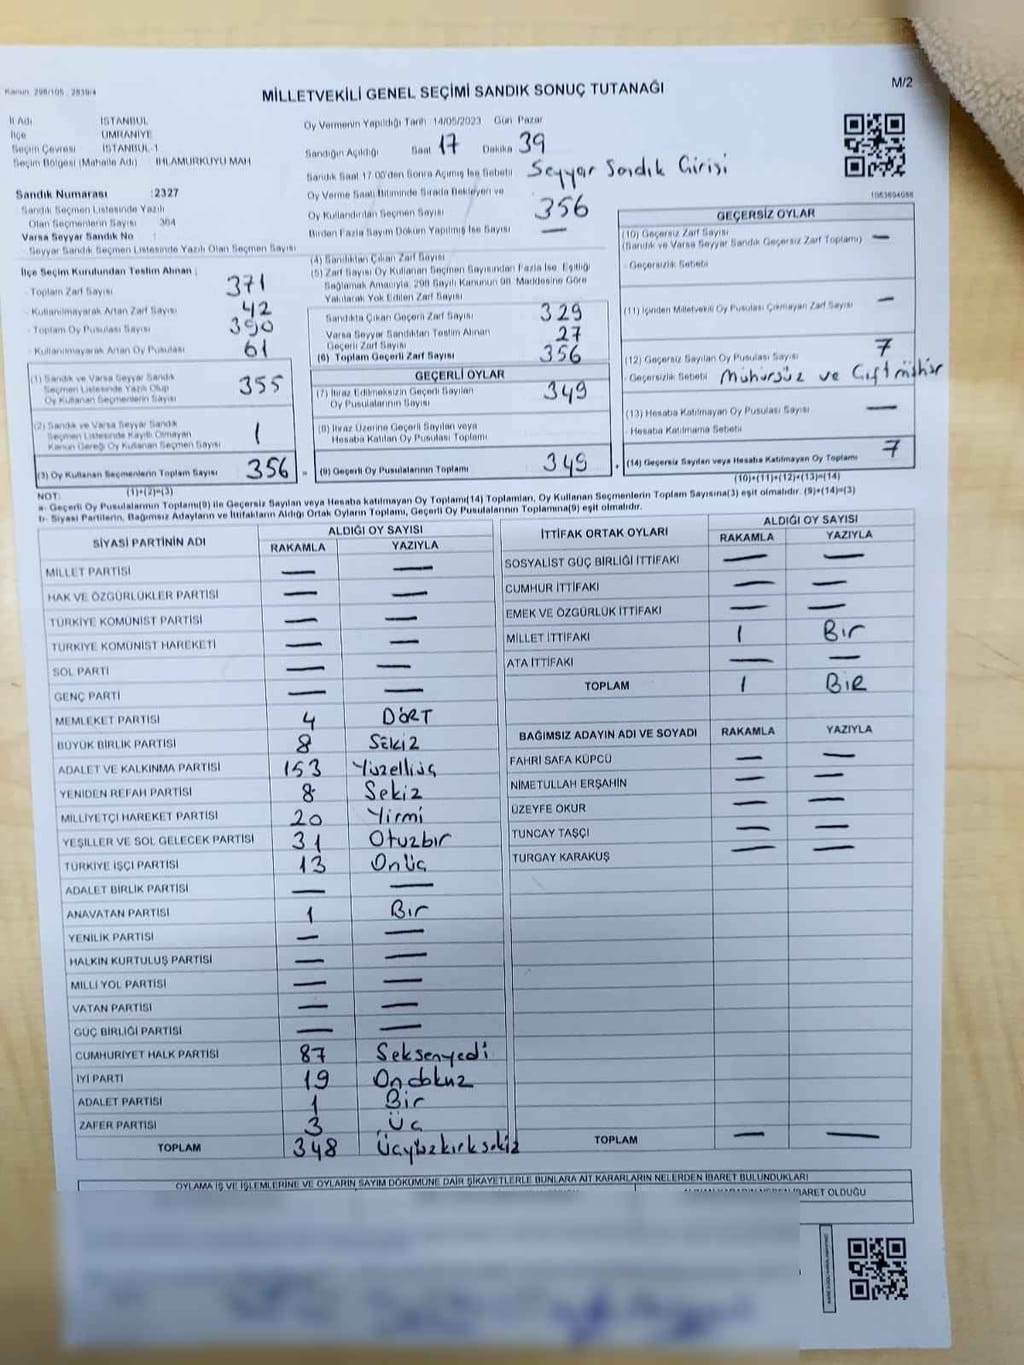 Kanun: 298/105 - 2839/4
MİLLETVEKİLİ GENEL SEÇİMİ SANDIK SONUÇ TUTANAĞI
M/2
İl Adı İSTANBUL
İlçe ÜMRANİYE
Seçim Çevresi İSTANBUL-1
Seçim Bölgesi (Mahalle Adı) IHLAMURKUYU MAH
Sandık Numarası : 2327
Sandık Seçmen Listesinde Yazılı
Olan Seçmenlerin Sayısı : 364
Varsa Seyyar Sandık No :
Seyyar Sandık Seçmen Listesinde Yazılı Olan Seçmen Sayısı :
Oy Vermenin Yapıldığı Tarih 14/05/2023 Gün Pazar
Sandığın Açıldığı Saat 17 Dakika 39
Sandık Saat 17.00'den Sonra Açılmış İse Sebebi Seyyar Sandık Girişi
Oy Verme Saati Bitiminde Sırada Bekleyen ve
Oy Kullandırılan Seçmen Sayısı 356
Birden Fazla Sayım Döküm Yapılmış İse Sayısı —
İlçe Seçim Kurulundan Teslim Alınan ;
- Toplam Zarf Sayısı 371
- Kullanılmayarak Artan Zarf Sayısı 42
- Toplam Oy Pusulası Sayısı 390
- Kullanılmayarak Artan Oy Pusulası 61
(1) Sandık ve Varsa Seyyar Sandık
Seçmen Listesinde Yazılı Olup
Oy Kullanan Seçmenlerin Sayısı 355
(2) Sandık ve Varsa Seyyar Sandık
Seçmen Listesinde Kayıtlı Olmayan
Kanun Gereği Oy Kullanan Seçmen Sayısı 1
(3) Oy Kullanan Seçmenlerin Toplam Sayısı 356
(1)+(2)=(3)
(4) Sandıktan Çıkan Zarf Sayısı
(5) Zarf Sayısı Oy Kullanan Seçmen Sayısından Fazla İse, Eşitliği
Sağlamak Amacıyla, 298 Sayılı Kanunun 98. Maddesine Göre
Yakılarak Yok Edilen Zarf Sayısı
Sandıkta Çıkan Geçerli Zarf Sayısı 329
Varsa Seyyar Sandıktan Teslim Alınan
Geçerli Zarf Sayısı 27
(6) Toplam Geçerli Zarf Sayısı 356
GEÇERLİ OYLAR
(7) İtiraz Edilmeksizin Geçerli Sayılan
Oy Pusulalarının Sayısı 349
(8) İtiraz Üzerine Geçerli Sayılan veya
Hesaba Katılan Oy Pusulası Toplamı
= (9) Geçerli Oy Pusulalarının Toplamı 349
1063694088
GEÇERSİZ OYLAR
(10) Geçersiz Zarf Sayısı —
(Sandık ve Varsa Seyyar Sandık Geçersiz Zarf Toplamı)
- Geçersizlik Sebebi
(11) İçinden Milletvekili Oy Pusulası Çıkmayan Zarf Sayısı —
(12) Geçersiz Sayılan Oy Pusulası Sayısı 7
- Geçersizlik Sebebi Mühürsüz ve Çift mühür
(13) Hesaba Katılmayan Oy Pusulası Sayısı —
- Hesaba Katılmama Sebebi
+ (14) Geçersiz Sayılan veya Hesaba Katılmayan Oy Toplamı 7
(10)+(11)+(12)+(13)=(14)
NOT:
a- Geçerli Oy Pusulalarının Toplamı(9) ile Geçersiz Sayılan veya Hesaba katılmayan Oy Toplamı(14) Toplamları, Oy Kullanan Seçmenlerin Toplam Sayısına(3) eşit olmalıdır. (9)+(14)=(3)
b- Siyasi Partilerin, Bağımsız Adayların ve İttifakların Aldığı Ortak Oyların Toplamı, Geçerli Oy Pusulalarının Toplamına(9) eşit olmalıdır.
SİYASİ PARTİNİN ADI ALDIĞI OY SAYISI
RAKAMLA YAZIYLA
MİLLET PARTİSİ — —
HAK VE ÖZGÜRLÜKLER PARTİSİ — —
TÜRKİYE KOMÜNİST PARTİSİ — —
TÜRKİYE KOMÜNİST HAREKETİ — —
SOL PARTİ — —
GENÇ PARTİ — —
MEMLEKET PARTİSİ 4 DÖRT
BÜYÜK BİRLİK PARTİSİ 8 SEKİZ
ADALET VE KALKINMA PARTİSİ 153 Yüzelliüç
YENİDEN REFAH PARTİSİ 8 Sekiz
MİLLİYETÇİ HAREKET PARTİSİ 20 Yirmi
YEŞİLLER VE SOL GELECEK PARTİSİ 31 Otuzbir
TÜRKİYE İŞÇİ PARTİSİ 13 Onüç
ADALET BİRLİK PARTİSİ — —
ANAVATAN PARTİSİ 1 Bir
YENİLİK PARTİSİ — —
HALKIN KURTULUŞ PARTİSİ — —
MİLLİ YOL PARTİSİ — —
VATAN PARTİSİ — —
GÜÇ BİRLİĞİ PARTİSİ — —
CUMHURİYET HALK PARTİSİ 87 Seksenyedi
İYİ PARTİ 19 Ondokuz
ADALET PARTİSİ 1 Bir
ZAFER PARTİSİ 3 Üç
TOPLAM 348 Üçyüzkırksekiz
İTTİFAK ORTAK OYLARI ALDIĞI OY SAYISI
RAKAMLA YAZIYLA
SOSYALİST GÜÇ BİRLİĞİ İTTİFAKI — —
CUMHUR İTTİFAKI — —
EMEK VE ÖZGÜRLÜK İTTİFAKI — —
MİLLET İTTİFAKI 1 Bir
ATA İTTİFAKI — —
TOPLAM 1 BİR
BAĞIMSIZ ADAYIN ADI VE SOYADI RAKAMLA YAZIYLA
FAHRİ SAFA KÜPCÜ — —
NİMETULLAH ERŞAHİN — —
ÜZEYFE OKUR — —
TUNCAY TAŞÇI — —
TURGAY KARAKUŞ — —
TOPLAM — —
OYLAMA İŞ VE İŞLEMLERİNE VE OYLARIN SAYIM DÖKÜMÜNE DAİR ŞİKAYETLERLE BUNLARA AİT KARARLARIN NELERDEN İBARET BULUNDUKLARI
İBARET OLDUĞU